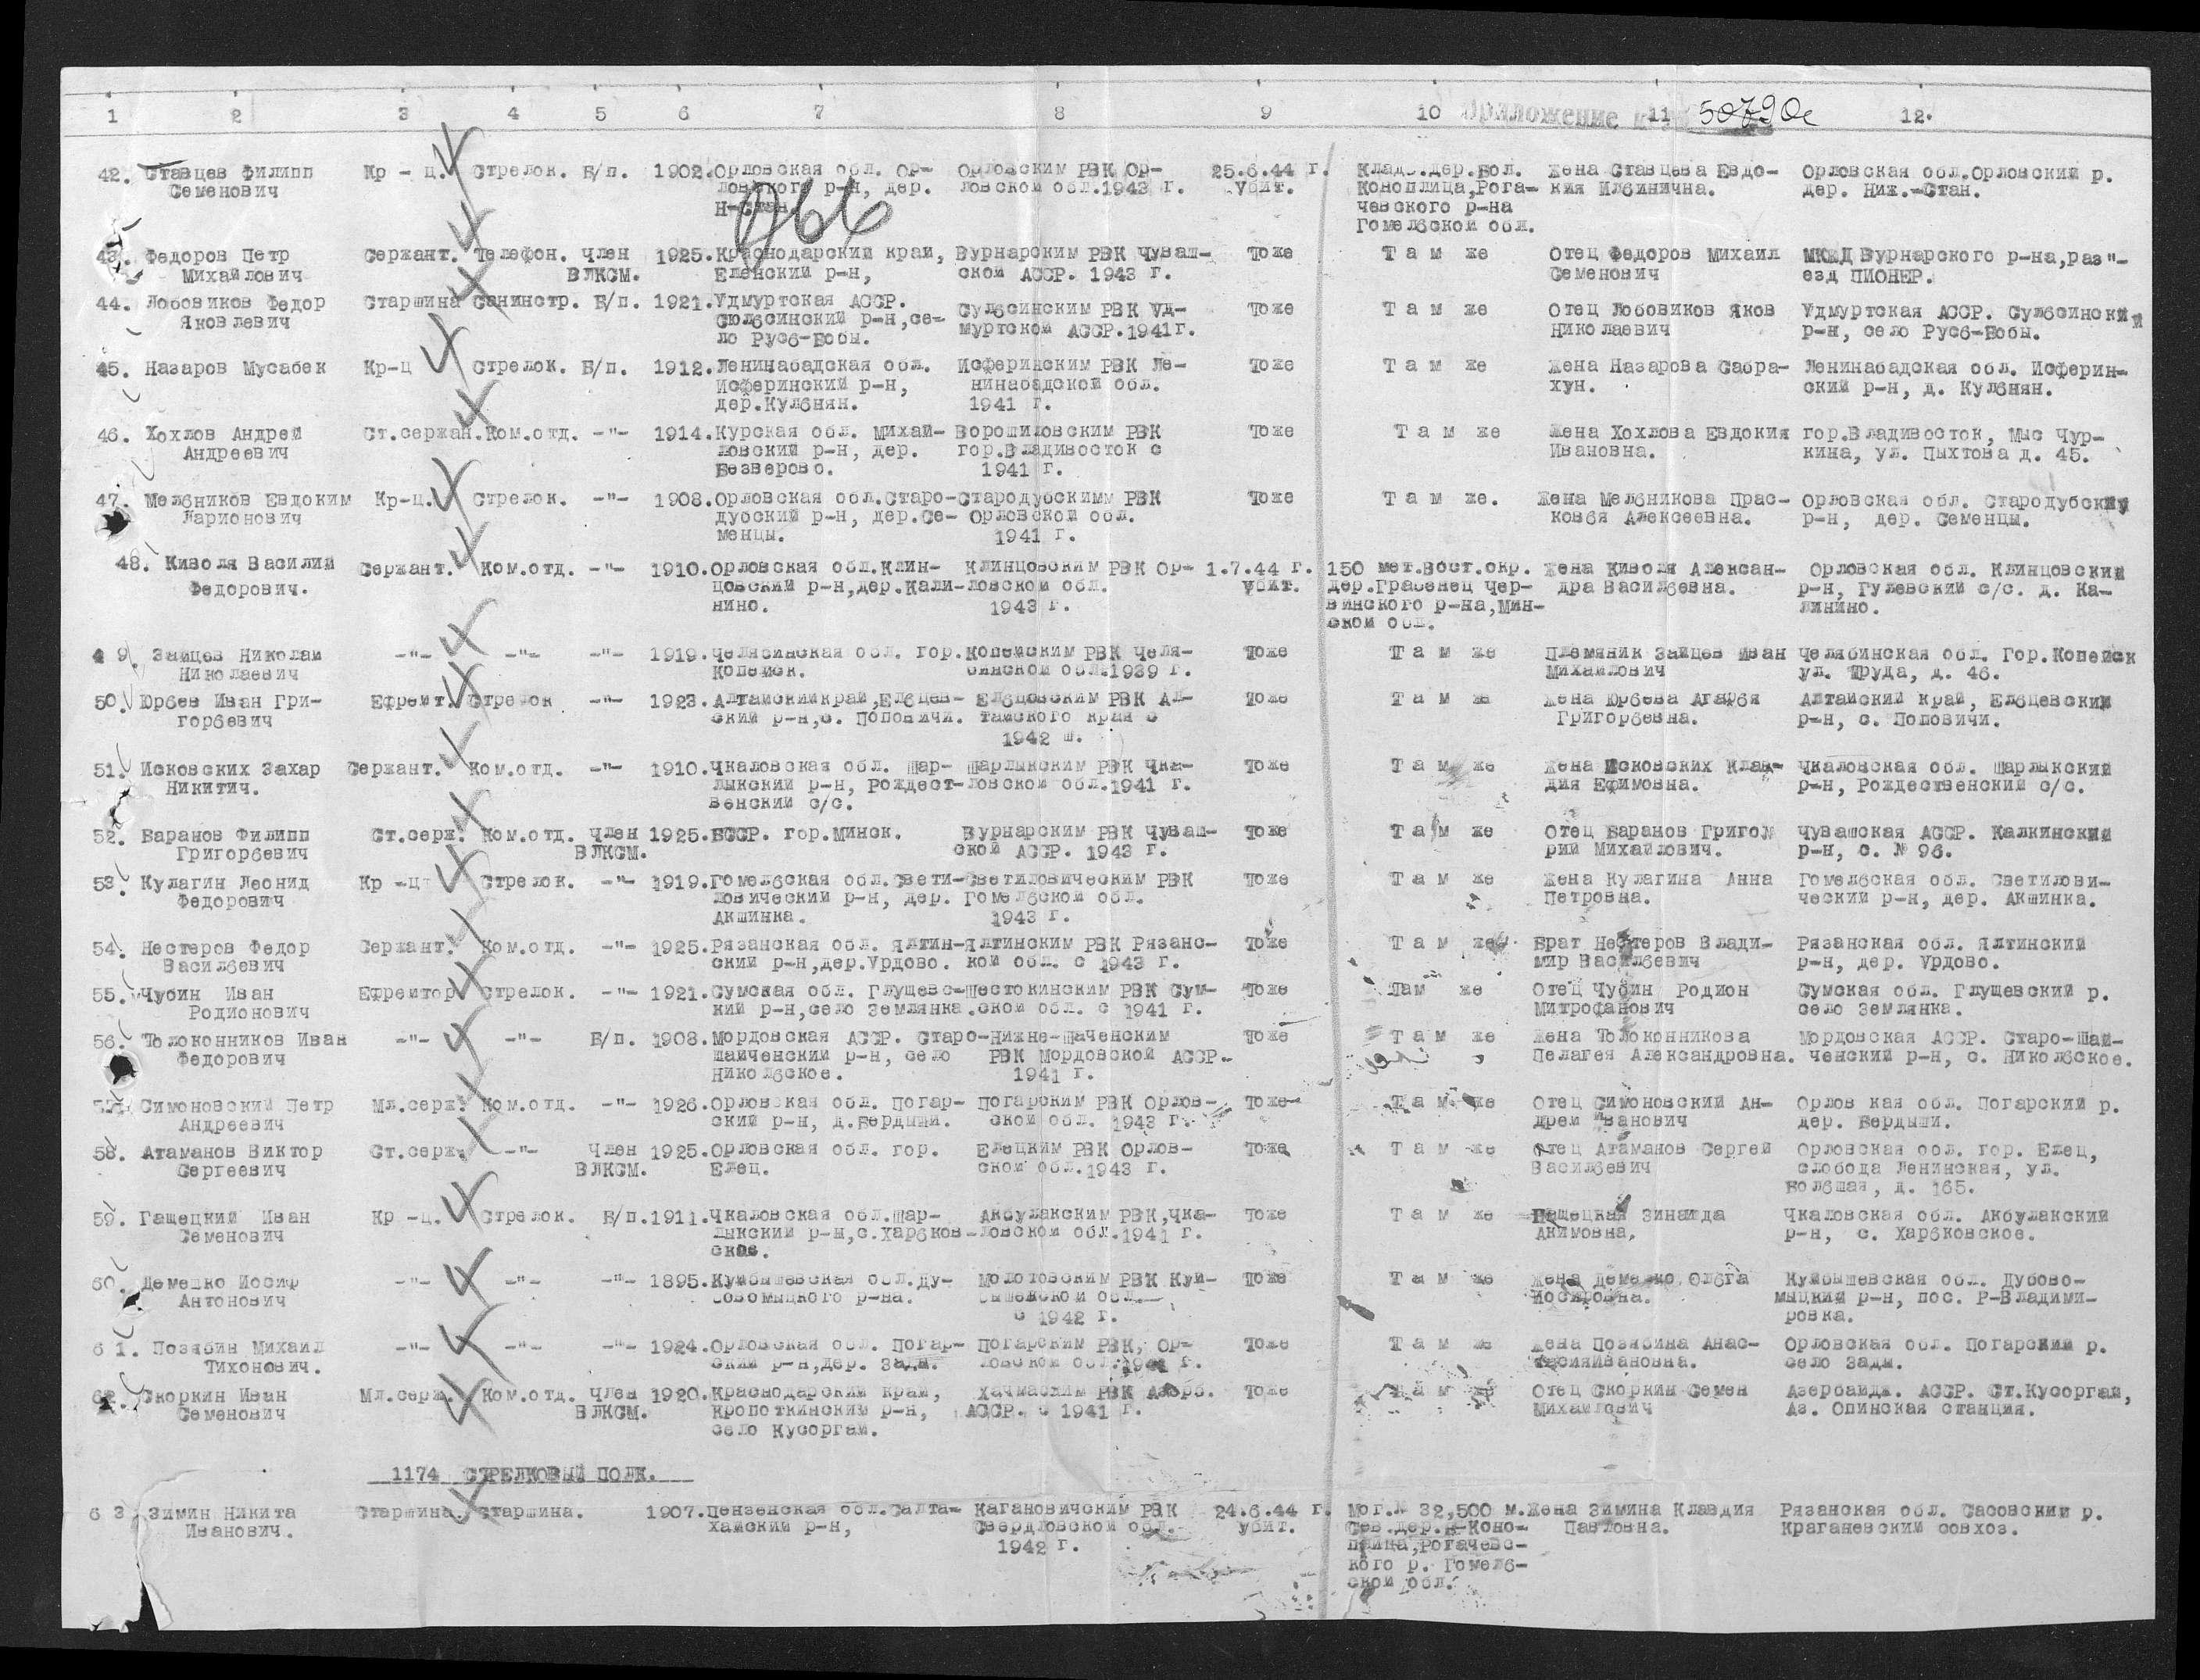 1 2 3 4 5 6 7 8 9 10 11 12.
Приложение к 50790с
966
42. Ставцев Филипп Кр - ц. Стрелок. Б/п. 1902. Орловская обл. Ор- Орловским РВК Ор- 25.6.44 г. Кладб.дер.Бол. Жена Ставцева Евдо- Орловская обл.Орловский р.
Семенович ловского р-н, дер. ловской обл.1943 г. Убит. Коноплица,Рога- кия Ильинична. дер. Ниж.-Стан.
Н-Стан. чевского р-на
Гомельской обл.
43. Федоров Петр Сержант. Телефон. Член 1925. Краснодарский край, Вурнарским РВК Чуваш- Тоже Т а м же Отец Федоров Михаил МКЖД Вурнарского р-на,раз"-
Михайлович ВЛКСМ. Еленский р-н, ской АССР. 1943 г. Семенович езд ПИОНЕР.
44. Лобовиков Федор Старшина Санинстр. Б/п. 1921. Удмуртская АССР. Сульсинским РВК Уд- Тоже Т а м же Отец Лобовиков Яков Удмуртская АССР. Сульсинский
Яковлевич Сюльсинский р-н,се- муртской АССР.1941г. Николаевич р-н, село Русь-Бобы.
ло Русь-Бобы.
45. Назаров Мусабек Кр-ц Стрелок. Б/п. 1912. Ленинабадская обл. Исферинским РВК Ле- Тоже Т а м же Жена Назарова Сабра- Ленинабадская обл. Исферин-
Исферинский р-н, нинабадской обл. хун. ский р-н, д. Кульнян.
дер.Кульнян. 1941 г.
46. Хохлов Андрей Ст.сержан. Ком.отд. -"- 1914. Курская обл. Михай- Ворошиловским РВК Тоже Т а м же Жена Хохлова Евдокия гор.Владивосток, Мыс Чур-
Андреевич ловский р-н, дер. гор.Владивосток с Ивановна. кина, ул. Пыхтова д. 45.
Безверово. 1941 г.
47. Мельников Евдоким Кр-ц. Стрелок. -"- 1908. Орловская обл.Старо- Стародубскимм РВК Тоже Т а м же. Жена Мельникова Прас- Орловская обл. Стародубский
Ларионович дубский р-н, дер.Се- Орловской обл. ковья Алексеевна. р-н, дер. Семенцы.
менцы. 1941 г.
48. Киволя Василий Сержант. Ком.отд. -"- 1910. Орловская обл.Клин- Клинцовским РВК Ор- 1.7.44 г. 150 мет.Вост.окр. Жена Киволя Алексан- Орловская обл. Клинцовский
Федорович. цовский р-н,дер.Кали- ловской обл. убит. дер.Грабенец Чер- дра Васильевна. р-н, Гулевский с/с. д. Ка-
нино. 1943 г. винского р-на,Мин- линино.
ской обл.
4 9. Зайцев Николай -"- -"- -"- 1919. Челябинская обл. гор. Копейским РВК Челя- Тоже Т а м же Племяник Зайцев Иван Челябинская обл. Гор.Копейск
Николаевич Копейск. бинской обл.1939 г. Михайлович ул. Труда, д. 46.
50. Юрьев Иван Гри- Ефрейт. Стрелок -"- 1923. Алтайскийкрай,Ельцев- Ельцовским РВК Ал- Тоже Т а м же Жена Юрьева Агарья Алтайский край, Ельцевский
горьевич ский р-н,с. Поповичи. тайского края с Григорьевна. р-н, с. Поповичи.
1942 ш.
51. Исковских Захар Сержант. Ком.отд. -"- 1910. Чкаловская обл. Шар- Шарлыкским РВК Чка- Тоже Т а м же Жена Исковских Клав- Чкаловская обл. Шарлыкский
Никитич. лыкский р-н, Рождест- ловской обл.1941 г. дия Ефимовна. р-н, Рождественский с/с.
венский с/с.
52. Баранов Филипп Ст.серж. Ком.отд. Член 1925. БССР. гор.Минск. Вурнарским РВК Чуваш- Тоже Т а м же Отец Баранов Григо Чувашская АССР. Калкинский
Григорьевич ВЛКСМ. ской АССР. 1943 г. рий Михайлович. р-н, с. № 96.
53. Кулагин Леонид Кр -ц Стрелок. -"- 1919. Гомельская обл.Свети- Светиловическим РВК Тоже Т а м же Жена Кулагина Анна Гомельская обл. Светилови-
Федорович ловический р-н, дер. Гомельской обл. Петровна. ческий р-н, дер. Акшинка.
Акшинка. 1943 г.
54. Нестеров Федор Сержант. Ком.отд. -"- 1925. Рязанская обл. Ялтин- Ялтинским РВК Рязанс- Тоже Т а м же Брат Нестеров Влади- Рязанская обл. Ялтинский
Васильевич ский р-н,дер.Урдово. кой обл. с 1943 г. мир Васильевич р-н, дер. Урдово.
55. Чубин Иван Ефрейтор Стрелок. -"- 1921. Сумская обл. Глущевс- Шестокинским РВК Сум- Тоже Там же Отец Чубин Родион Сумская обл. Глущевский р.
Родионович кий р-н,село Землянка. ской обл. с 1941 г. Митрофанович село Землянка.
56. Толоконников Иван -"- -"- Б/п. 1908. Мордовская АССР. Старо- Нижне-Шаченским Тоже Т а м же Жена Толоконникова Мордовская АССР. Старо-Шай-
Федорович Шайченский р-н, село РВК Мордовской АССР. Пелагея Александровна. ченский р-н, с. Никольское.
Никольское. 1941 г.
57. Симоновский Петр Мл.серж. Ком.отд. -"- 1926. Орловская обл. Погар- Погарским РВК Орлов- Тоже Т а м же Отец Симоновский Ан- Орлов кая обл. Погарский р.
Андреевич ский р-н, д.Бердыши. ской обл. 1943 г. дрей Иванович дер. Бердыши.
58. Атаманов Виктор Ст.серж. -"- Член 1925. Орловская обл. гор. Елецким РВК Орлов- Тоже Т а м же Отец Атаманов Сергей Орловская обл. гор. Елец,
Сергеевич ВЛКСМ. Елец. ской обл.1943 г. Васильевич слобода Ленинская, ул.
Большая, д. 165.
59. Гащецкий Иван Кр -ц. Стрелок. Б/п. 1911. Чкаловская обл.Шар- Акбулакским РВК,Чка- Тоже Т а м же Гащецкая Зинаида Чкаловская обл. Акбулакский
Семенович лыкский р-н,с.Харьков- ловской обл.1941 г. Акимовна, р-н, с. Харьковское.
ское.
60. Демешко Иосиф -"- -"- -"- 1895. Куйбышевская обл.Ду- Молотовским РВК Куй- Тоже Т а м же Жена Ольга Куйбышевская обл. Дубово-
Антонович бовомыцкого р-на. бышевской обл. Иосифовна. мыцкий р-н, пос. Р-Владими-
с 1942 г. ровка.
6 1. Позябин Михаил -"- -"- -"- 1924. Орловская обл. Погар- Погарским РВК, Ор- Тоже Т а м же Жена Позябина Анас- Орловская обл. Погарский р.
Тихонович. ский р-н,дер. Зады. ловской обл. г. тасияИвановна. село Зады.
62. Скоркин Иван Мл.серж. Ком.отд. Член 1920. Краснодарский край, Хачмаским РВК Азерб. Тоже Т а м же Отец Скоркин Семен Азербайдж. АССР. Ст.Кусоргай,
Семенович ВЛКСМ. Кропоткинский р-н, АССР. с 1941 г. Михайлович Аз. Опинская станция.
село Кусоргай.
1174 СТРЕЛКОВЫЙ ПОЛК.
6 3. Зимин Никита Старшина. Старшина. 1907. Пензенская обл.Салта- Кагановичским РВК 24.6.44 г. Мог.№ 32,500 м. Жена Зимина Клавдия Рязанская обл. Сасовский р.
Иванович. хайский р-н, Свердловской обл. убит. Сев.дер.Б-Коно- Павловна. Краганевский совхоз.
1942 г. плица,Рогачевс-
кого р. Гомель-
ской обл.